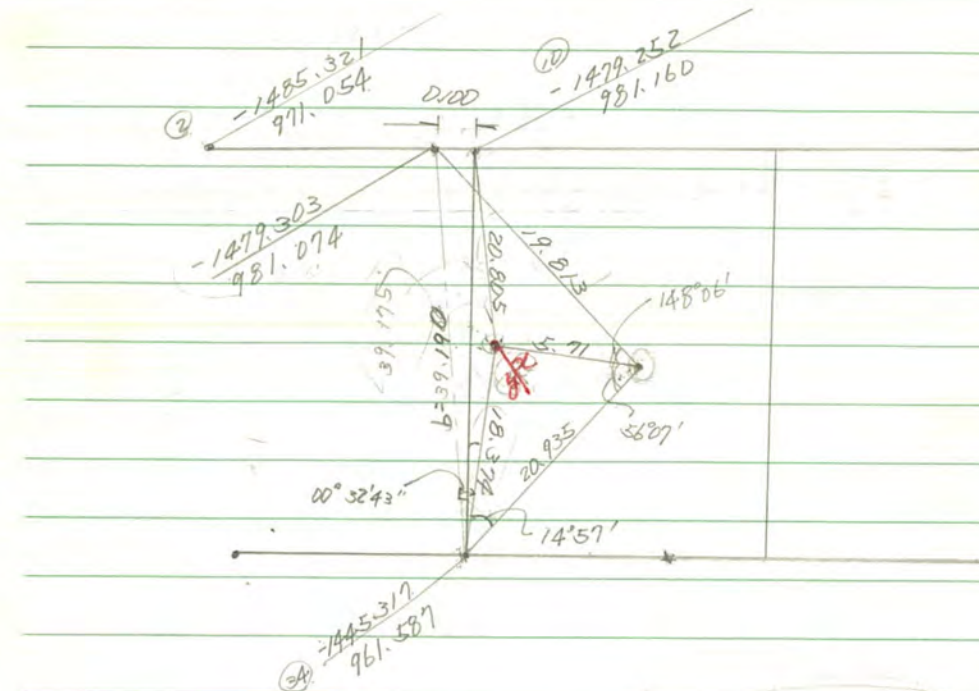 ② -1485.321
971.054
0.100
⑩ -1479.252
981.160
-1479.303
981.074
39.175
20.805
19.813
148°06'
5.71
56°07'
18.374
20.935
00°32'43"
14°57'
㉞ -1445.317
961.587